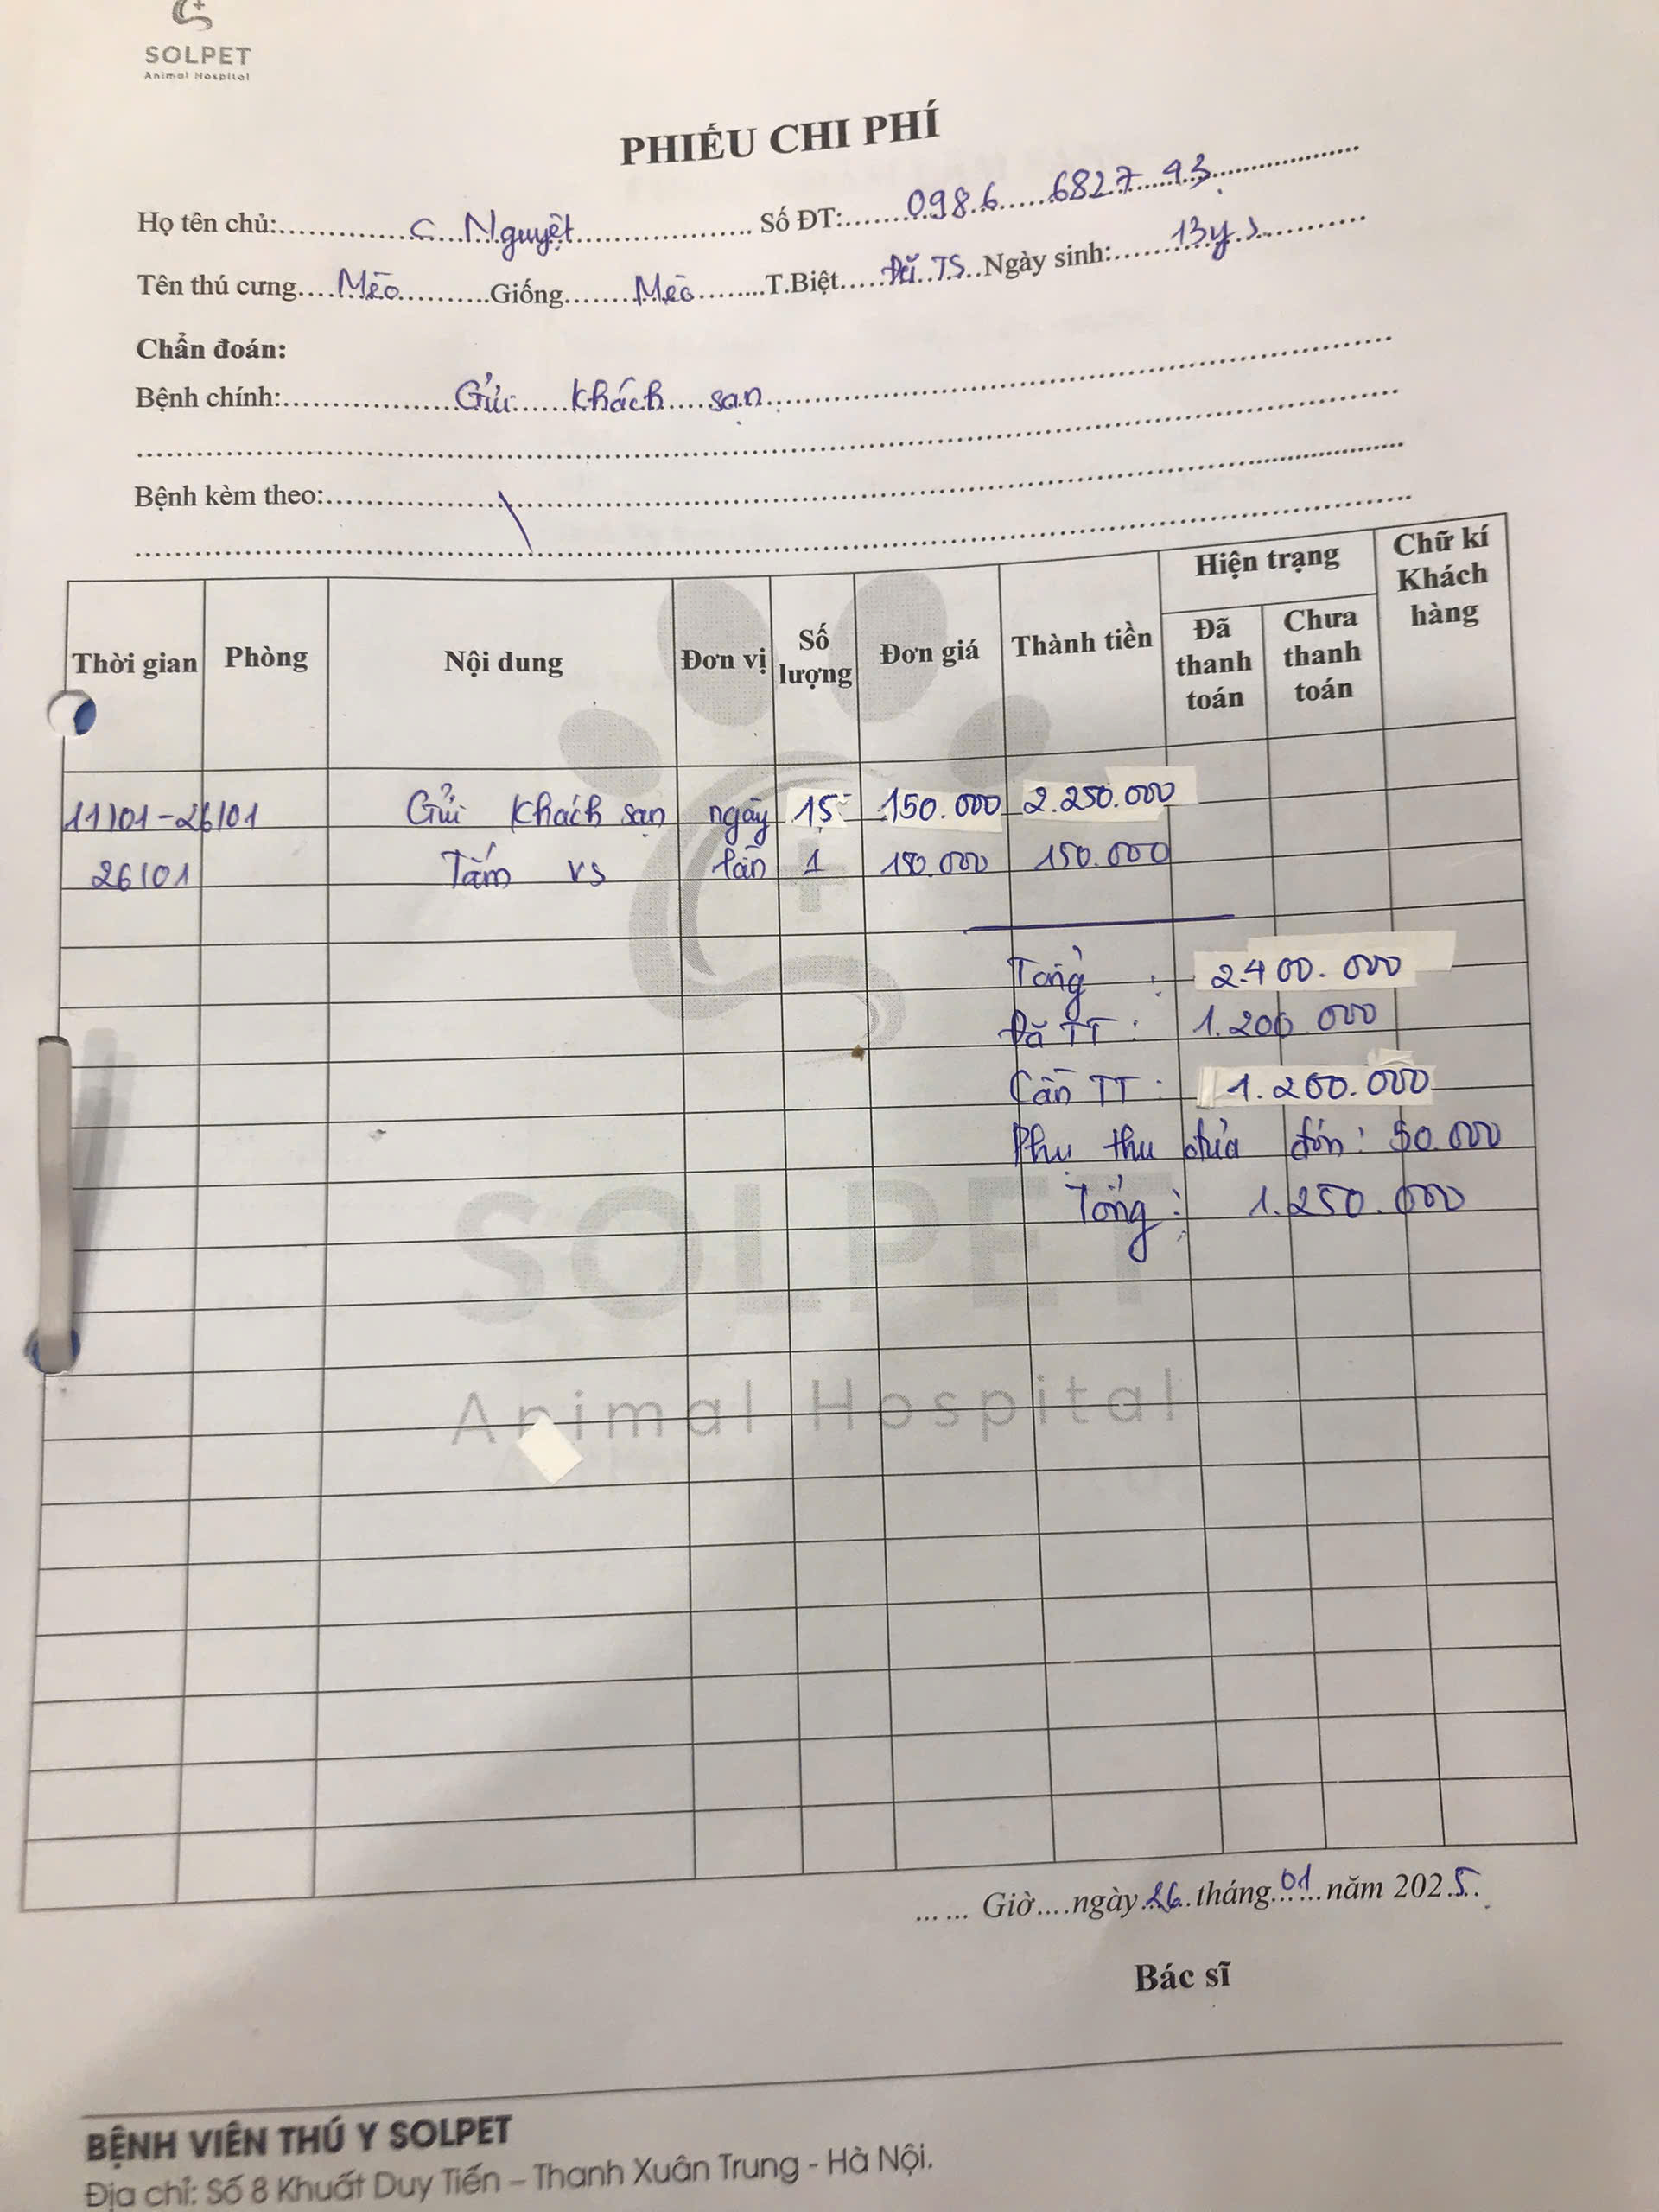 SOLPET
Animal Hospital
PHIẾU CHI PHÍ
Họ tên chủ: C Nguyệt Số ĐT: 0986 6827 93
Tên thú cưng Mèo Giống Mèo T.Biệt Đã TS Ngày sinh: 13y
Chẩn đoán:
Bệnh chính: Gửi khách sạn
Bệnh kèm theo:
Thời gian Phòng Nội dung Đơn vị Số lượng Đơn giá Thành tiền Hiện trạng Đã thanh toán Chưa thanh toán Chữ kí Khách hàng
11/01-26/01 Gửi khách sạn ngày 15 150.000 2.250.000
26/01 Tắm vs lần 1 150.000 150.000
Tổng : 2.400.000
Đã TT : 1.200.000
Cần TT : 1.200.000
Phụ thu đưa đón : 50.000
Tổng : 1.250.000
SOLPET
Animal Hospital
...... Giờ....ngày 26 tháng 01 năm 2025
Bác sĩ
BỆNH VIỆN THÚ Y SOLPET
Địa chỉ: Số 8 Khuất Duy Tiến – Thanh Xuân Trung - Hà Nội.